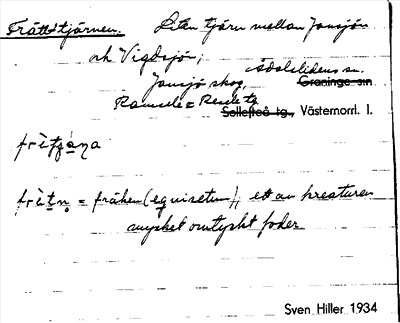 Frättstjärnen. Liten tjärn mellan Jansjön
och Vigdsjön,
Jansjö skog, Ådalslidens sn.
Graninge sn
Ramsele = Resele tg
Sollefteå tg., Västernorrl. l.
frìtʒa̱na
frìtn̥ = fräken (equisetum), ett av kreaturen
mycket omtyckt foder
Sven Hiller 1934